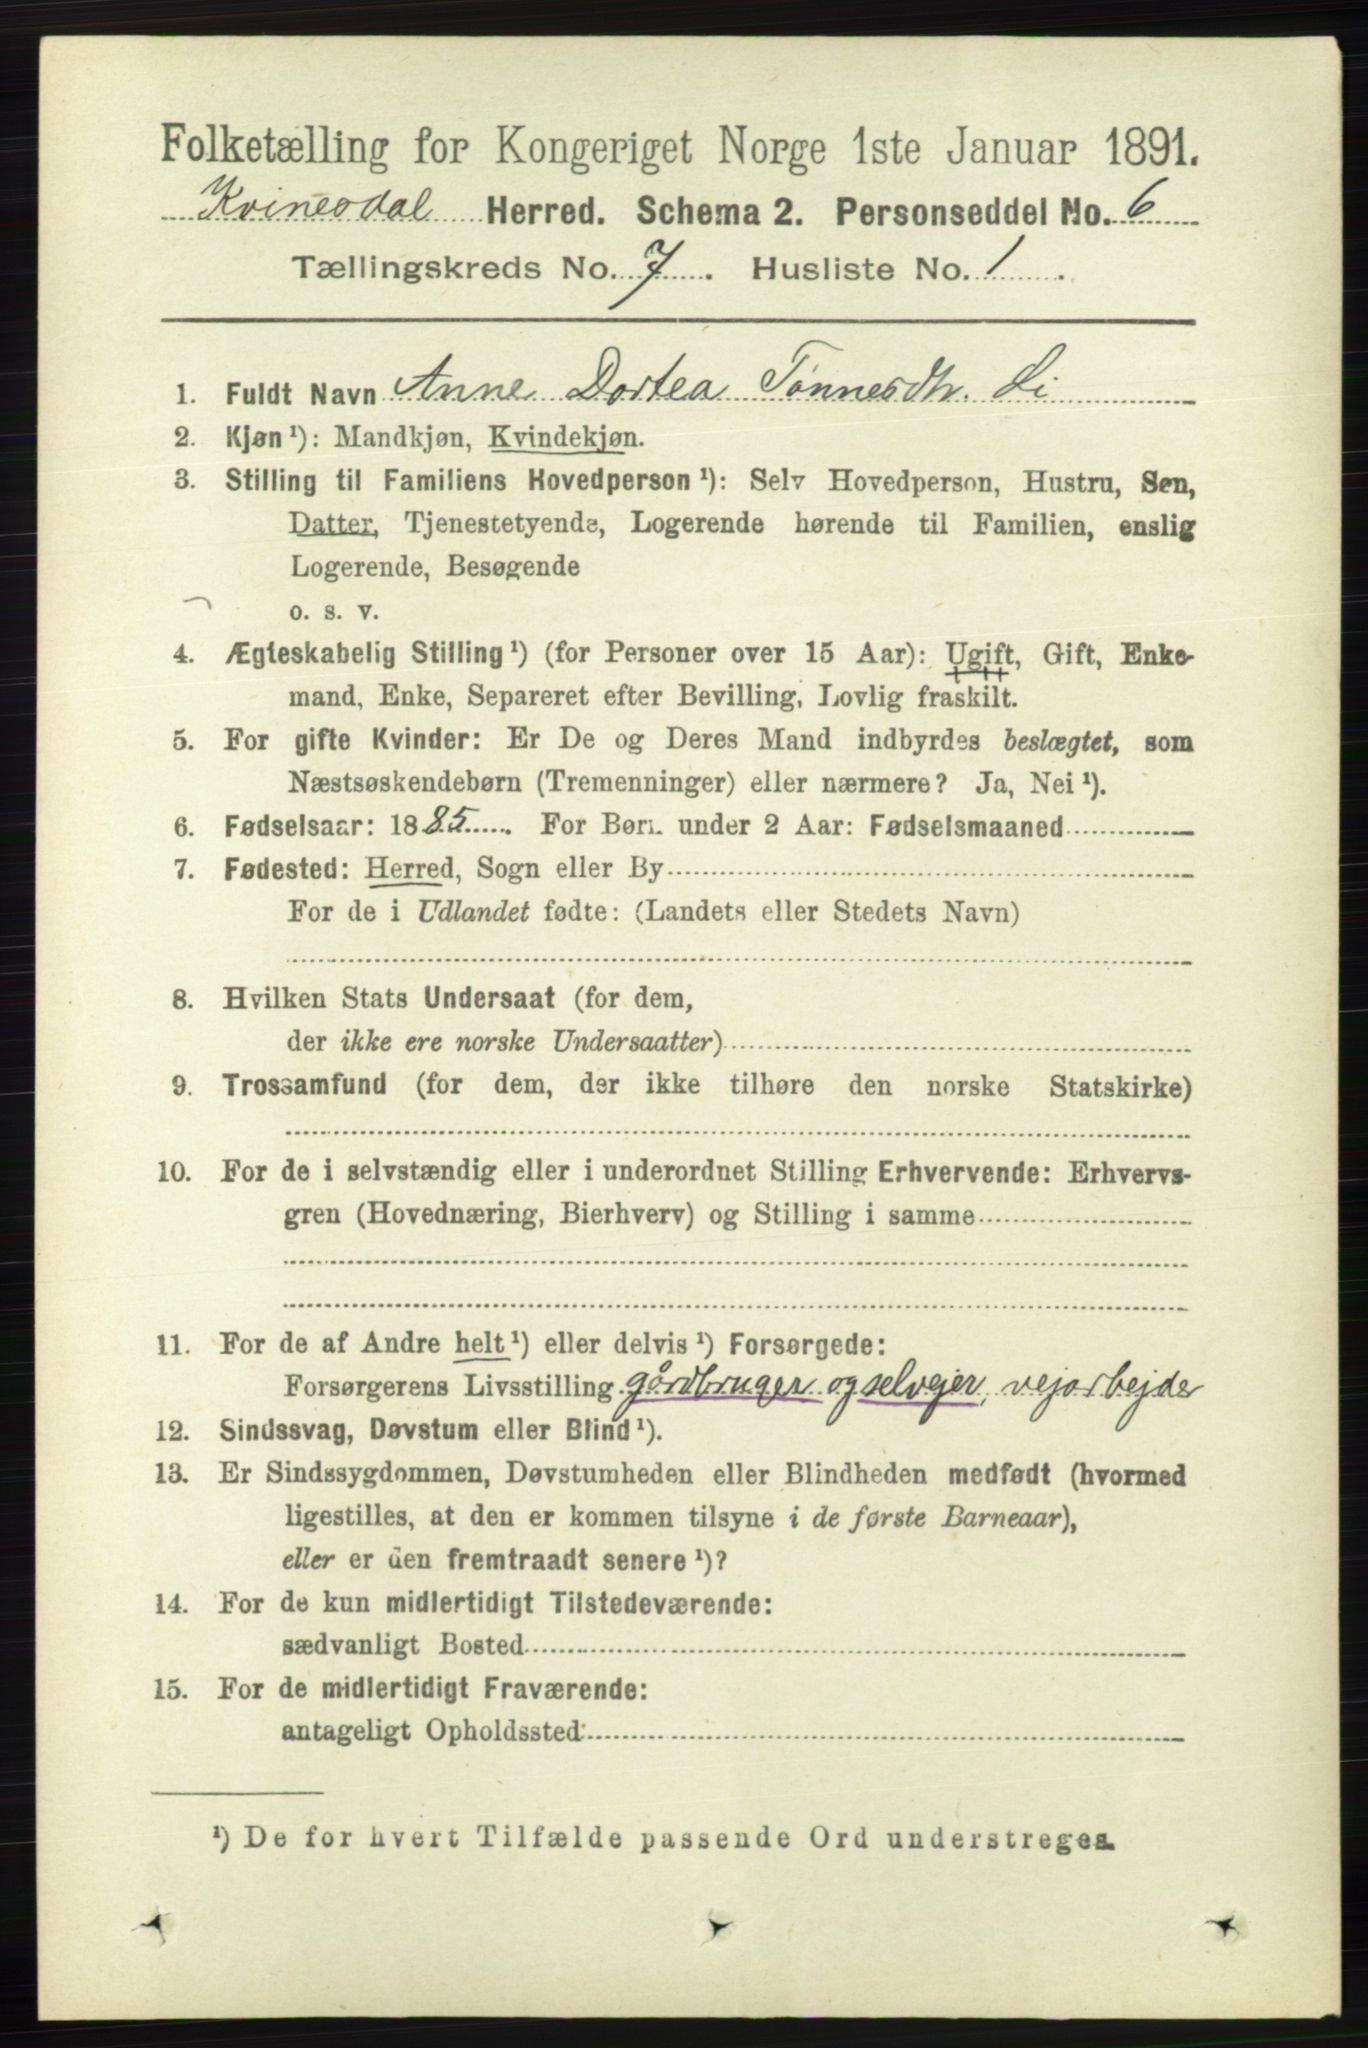 Folketælling for Kongeriget Norge 1ste Januar 1891.
Kvinesdal Herred. Schema 2. Personseddel No. 6
Tællingskreds No. 7. Husliste No. 1.
1. Fuldt Navn Anne Dortea Tønnesdtr. Li
2. Kjøn¹): Mandkjøn, Kvindekjøn.
3. Stilling til Familiens Hovedperson¹): Selv Hovedperson, Hustru, Søn,
Datter, Tjenestetyende, Logerende hørende til Familien, enslig
Logerende, Besøgende
o. s. v.
4. Ægteskabelig Stilling¹) (for Personer over 15 Aar): Ugift, Gift, Enke-
mand, Enke, Separeret efter Bevilling, Lovlig fraskilt.
5. For gifte Kvinder: Er De og Deres Mand indbyrdes beslægtet, som
Næstsøskendebørn (Tremenninger) eller nærmere? Ja, Nei¹).
6. Fødselsaar: 1885. For Børn under 2 Aar: Fødselsmaaned
7. Fødested: Herred, Sogn eller By
For de i Udlandet fødte: (Landets eller Stedets Navn)
8. Hvilken Stats Undersaat (for dem,
der ikke ere norske Undersaatter)
9. Trossamfund (for dem, der ikke tilhøre den norske Statskirke)
10. For de i selvstændig eller i underordnet Stilling Erhvervende: Erhvervs-
gren (Hovednæring, Bierhverv) og Stilling i samme
11. For de af Andre helt¹) eller delvis¹) Forsørgede:
Forsørgerens Livsstilling gårdbruger og selvejer, vejarbejder
12. Sindssvag, Døvstum eller Blind¹).
13. Er Sindssygdommen, Døvstumheden eller Blindheden medfødt (hvormed
ligestilles, at den er kommen tilsyne i de første Barneaar),
eller er den fremtraadt senere¹)?
14. For de kun midlertidigt Tilstedeværende:
sædvanligt Bosted
15. For de midlertidigt Fraværende:
antageligt Opholdssted
¹) De for hvert Tilfælde passende Ord understreges.